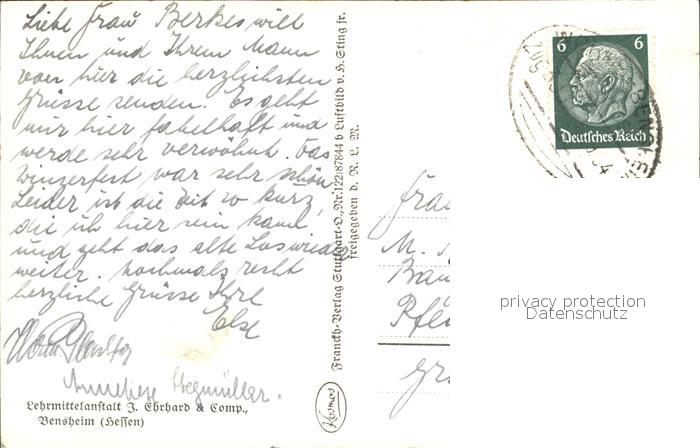 Liebe Frau Berkes will
Ihnen und Ihrem Mann
von hier die herzlichsten
Grüsse senden. Es geht
mir hier fabelhaft und
werde sehr verwöhnt. Das
Winzerfest war sehr schön.
Leider ist die Zeit so kurz,
die ich hier sein kann
und geht das alte
weiter. Nochmals recht
herzliche Grüsse Ihre
Else
Anneliese Stegmüller.
Lehrmittelanstalt J. Ehrhard & Comp.,
Bensheim (Hessen)
Franckh-Verlag Stuttgart-O., Nr. 122/87844 b Luftbild v. H. Sting jr.
freigegeben d. R. L. M.
Kosmos
6 6
Deutsches Reich
Frau
M.
privacy protection
Datenschutz